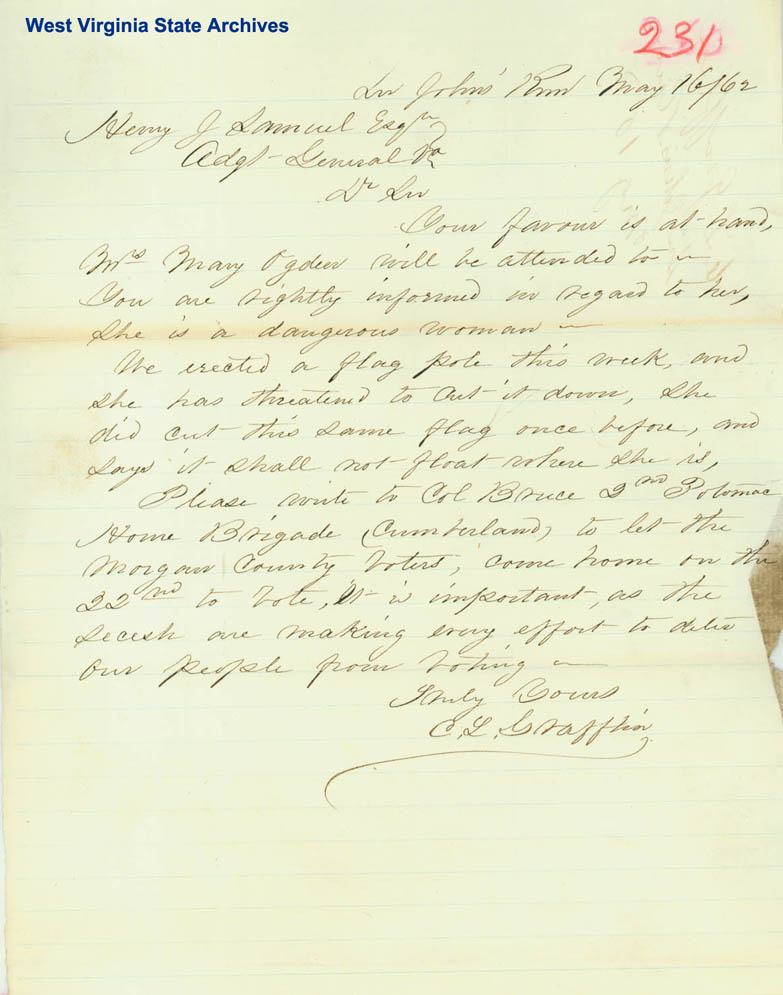 West Virginia State Archives
231
Sir John's Run May 16/62
Henry J Samuel Esqr
Adgt General Va
Dr Sir
Your favour is at hand,
Mrs Mary Ogden will be attended to —
You are rightly informed in regard to her,
she is a dangerous woman —
We erected a flag pole this week, and
she has threatened to cut it down, she
did cut this same flag once before, and
says it shall not float where she is,
Please write to Col Bruce 2nd Potomac
Home Brigade (Cumberland) to let the
Morgan County voters, come home on the
22nd to vote, it is important, as the
secesh are making every effort to deter
our people from voting —
Truly Yours
C. L. Grafflin